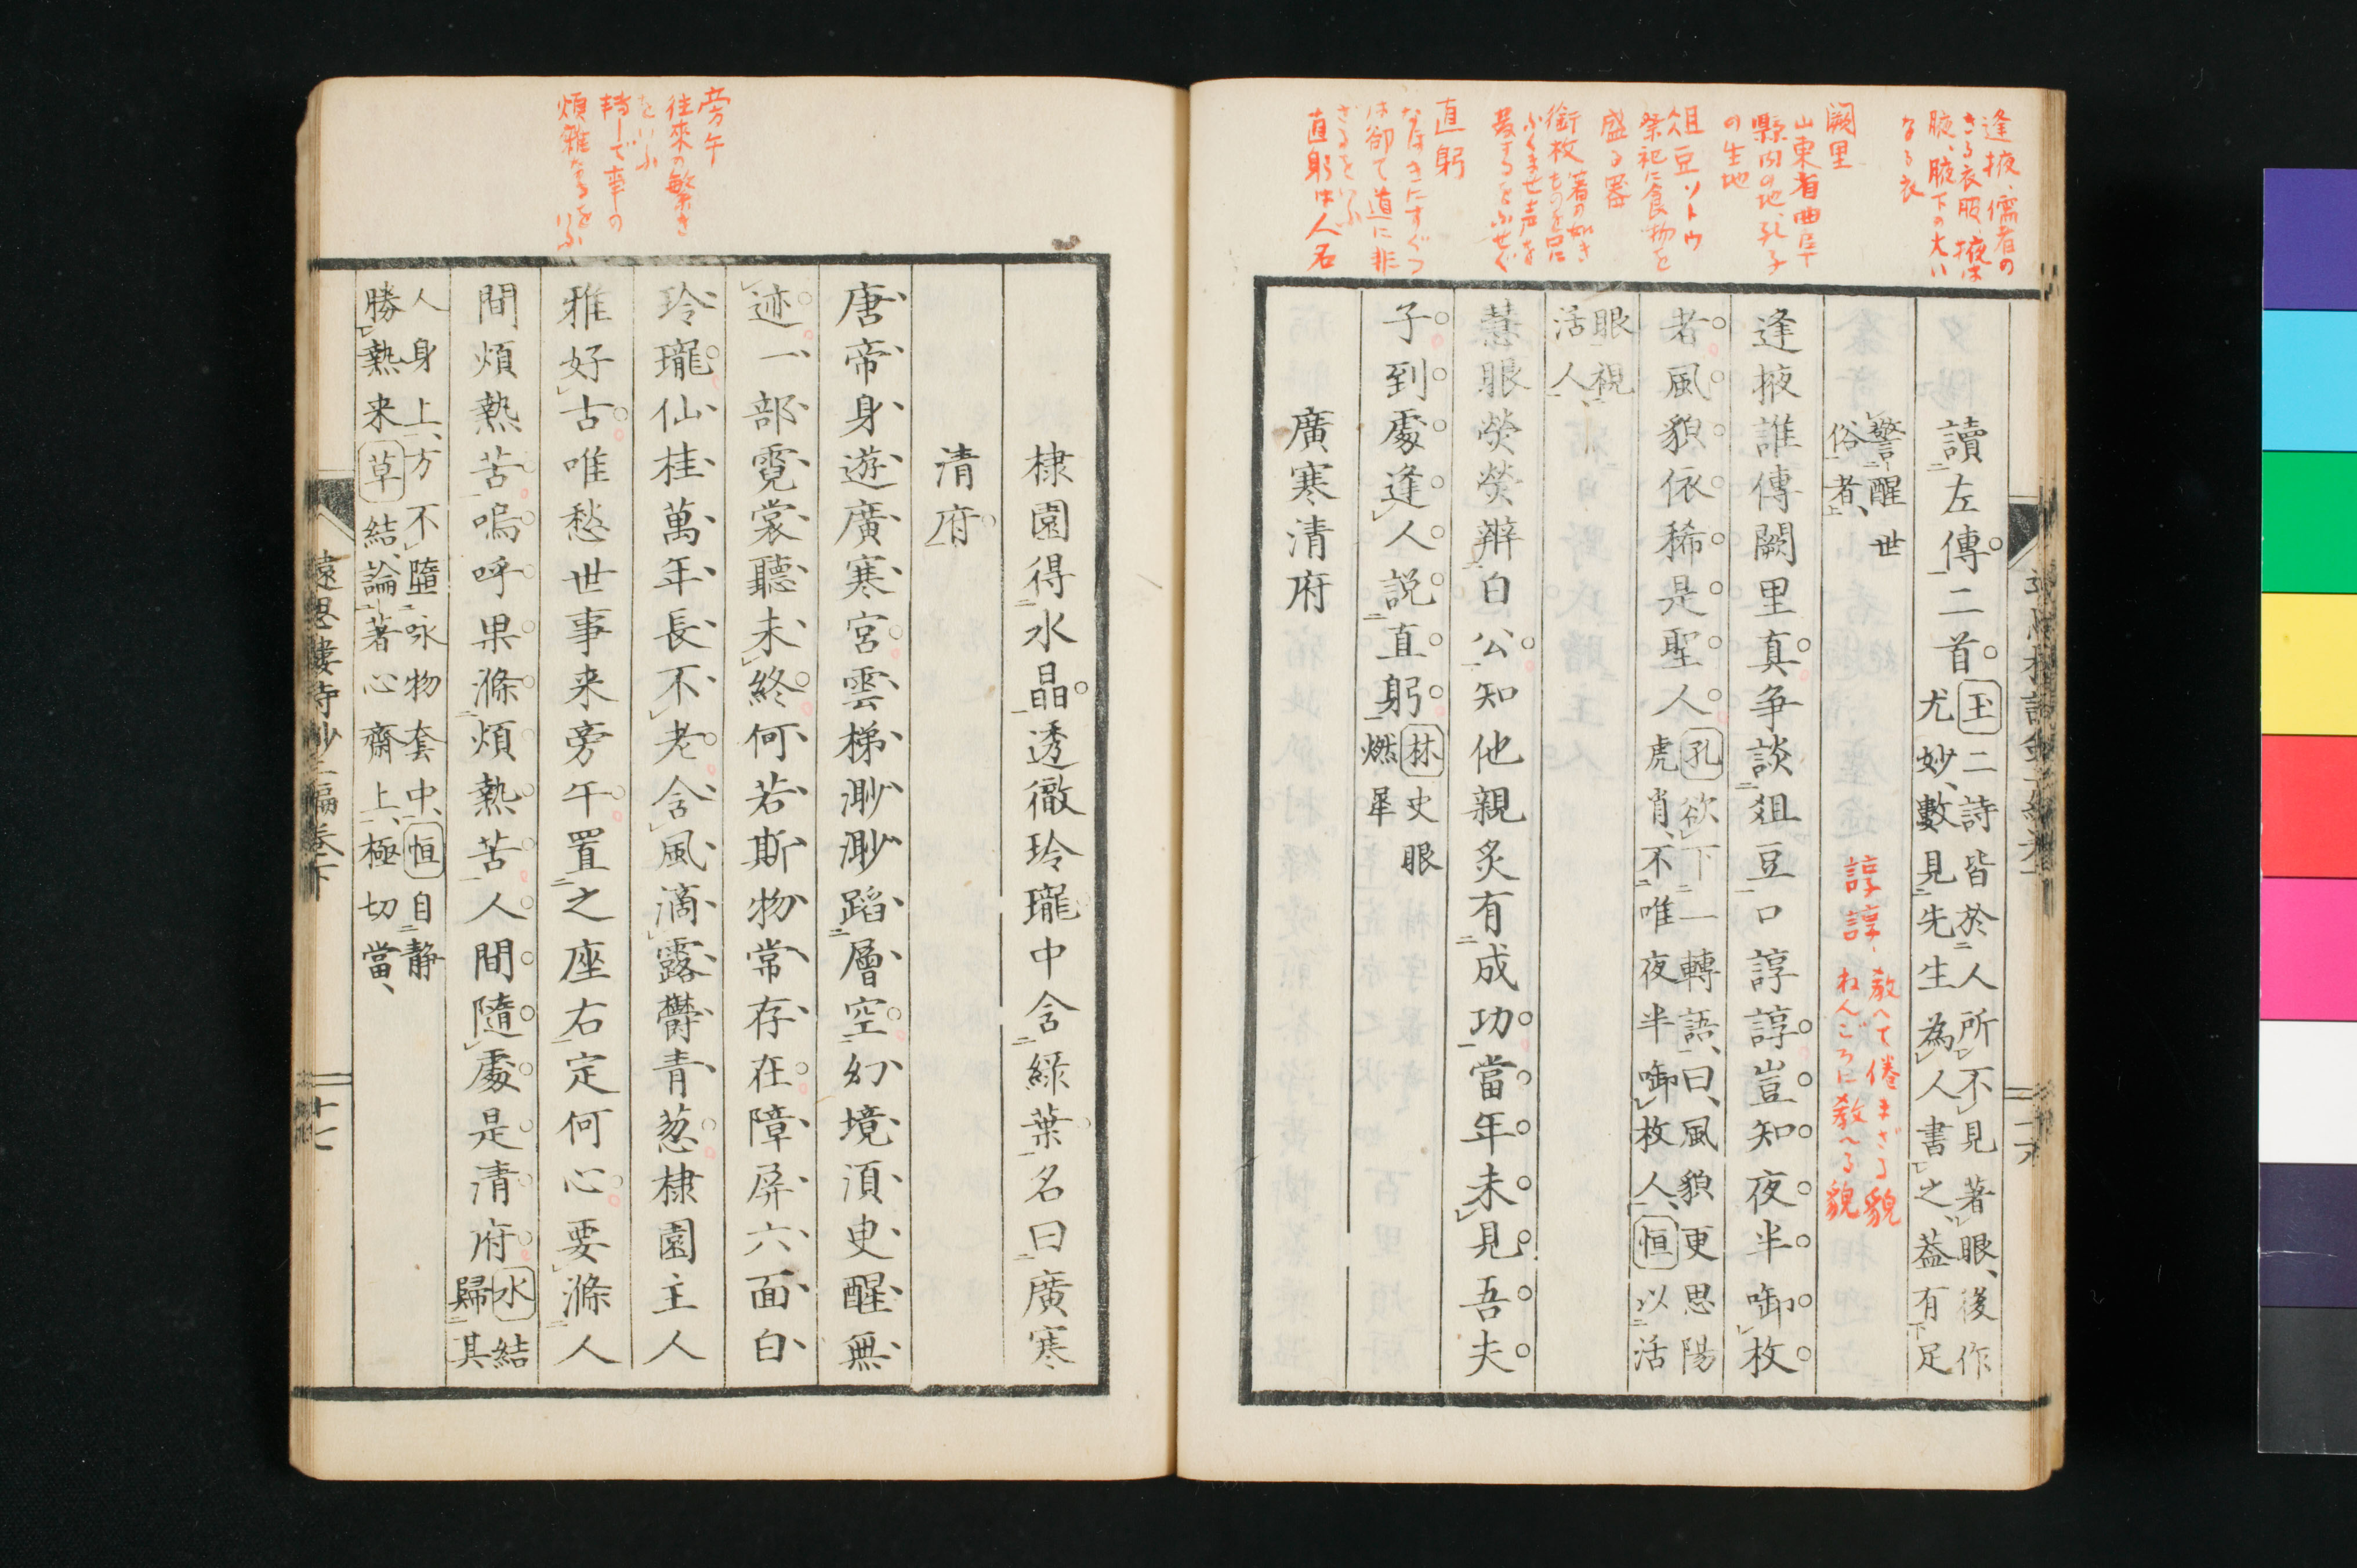 逢掖、儒者の
きる衣服、掖は
腋、腋下の大い
なる衣
闕里
山東省曲阜
縣内の地、孔子
の生地
俎豆 ソトウ
祭祀に食物を
盛る器
銜枚 箸の如き
ものを口に
ふくませ声を
発するをふせぐ
直躬
なほきにすぐつ
は却て道に非
ざるをいふ
直躬は人名
讀左傳二首
玉 二詩皆於人所不見著眼、後作
尤妙、數見先生為人書之、葢有足
警醒世
俗者、
諄諄 教へて倦まざる貌
ねんごろに教へる貌
逢掖誰傳闕里真争談俎豆口諄諄豈知夜半啣枚
者風貌依稀是聖人
孔 欲下一轉語、曰、風貌更思陽
虎肖、不唯夜半啣枚人、恒 以活
眼視
活人、
慧眼熒熒辨白公知他親炙有成功當年未見吾夫
子到處逢人説直躬
林 史眼
燃犀
廣寒清府
旁午
往來の繁き
をいふ
轉じて事の
煩雜なるをいふ
棣園得水晶透徹玲瓏中含緑葉名曰廣寒
清府
唐帝身遊廣寒宮雲梯渺渺蹈層空幻境須臾醒無
迹一部霓裳聽未終何若斯物常存在障屏六面白
玲瓏仙桂萬年長不老含風滴露欝青葱棣園主人
雅好古唯愁世事来旁午置之座右定何心要滌人
間煩熱苦嗚呼果滌煩熱苦人間隨處是清府
水 結
歸其
人身上、方不墮咏物套中、恒 自静
勝熱来 草 結論著心齋上、極切當、
遠思樓詩鈔二編卷下
十七